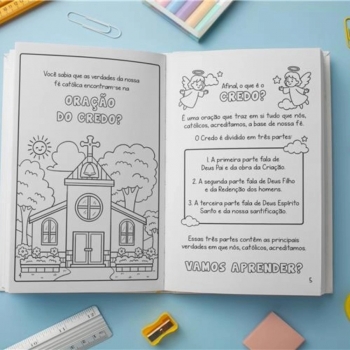 Você sabia que as verdades da nossa
fé católica encontram-se na
ORAÇÃO
DO CREDO?
Afinal, o que é o
CREDO?
É uma oração que traz em si tudo que nós,
católicos, acreditamos, a base de nossa fé.
O Credo é dividido em três partes:
1. A primeira parte fala de
Deus Pai e da obra da Criação.
2. A segunda parte fala de Deus Filho
e da Redenção dos homens.
3. A terceira parte fala de Deus Espírito
Santo e da nossa santificação.
Essas três partes contêm as principais
verdades em que nós, católicos, acreditamos.
VAMOS APRENDER?
5